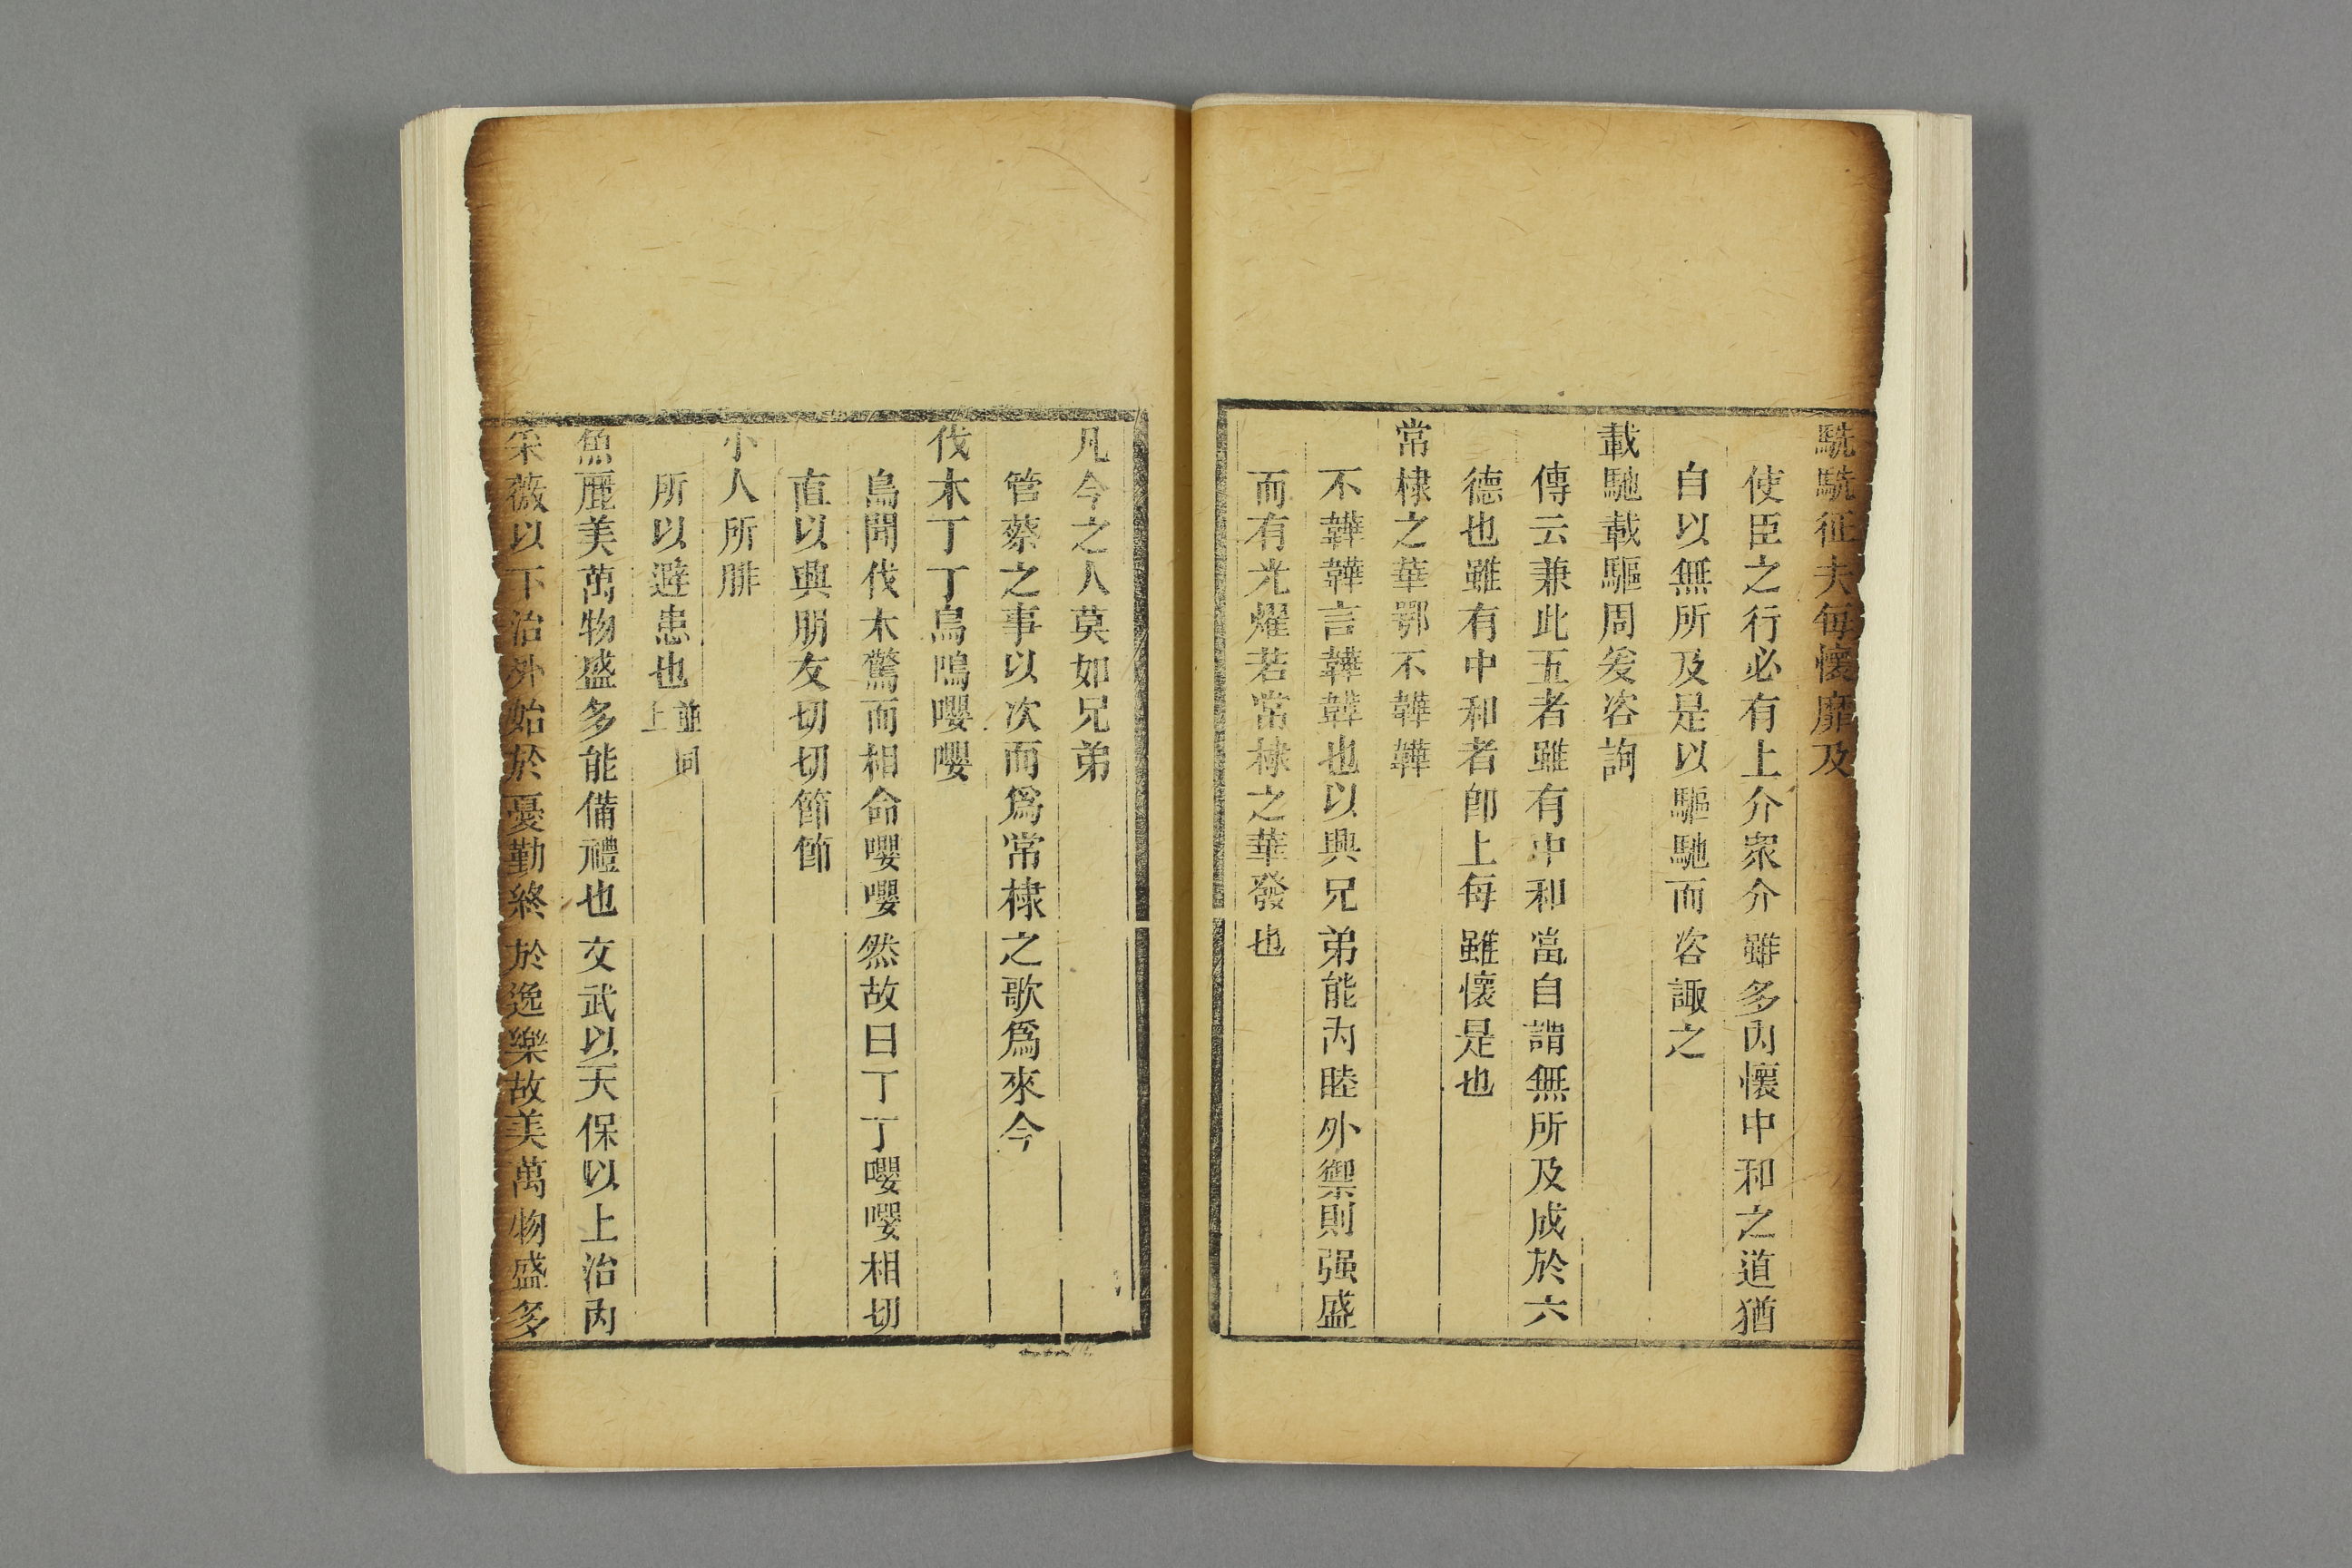 駪駪征夫每懷靡及
使臣之行必有上介衆介雖多內懷中和之道猶
自以無所及是以驅馳而咨諏之
載馳載驅周爰咨詢
傳云兼此五者雖有中和當自謂無所及成於六
德也雖有中和者卽上每雖懷是也
常棣之華鄂不韡韡
不韡韡言韡韡也以興兄弟能內睦外禦則强盛
而有光燿若常棣之華發也
凡今之人莫如兄弟
管蔡之事以次而爲常棣之歌爲來今
伐木丁丁鳥鳴嚶嚶
鳥聞伐木驚而相命嚶嚶然故曰丁丁嚶嚶相切
直以興朋友切切節節
小人所腓
所以避患也並同上
魚麗美萬物盛多能備禮也文武以天保以上治內
采薇以下治外始於憂勤終於逸樂故美萬物盛多